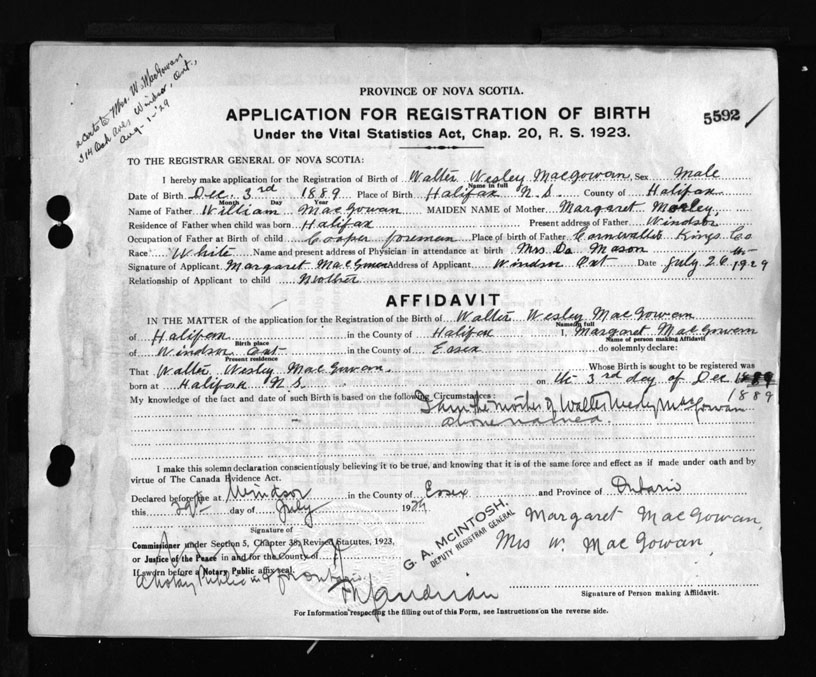 a Certe to Mrs. W. MacGowan
314 Oak Ave, Windsor, Ont.,
Aug-1-'29
PROVINCE OF NOVA SCOTIA.
5592
APPLICATION FOR REGISTRATION OF BIRTH
Under the Vital Statistics Act, Chap. 20, R. S. 1923.
TO THE REGISTRAR GENERAL OF NOVA SCOTIA:
I hereby make application for the Registration of Birth of Walter Wesley MacGowan, Sex Male
Name in full
Date of Birth Dec. 3rd 1889 Place of Birth Halifax N.S. County of Halifax
Month Day Year
Name of Father William MacGowan MAIDEN NAME of Mother Margaret Morley,
Residence of Father when child was born Halifax Present address of Father Windsor
Occupation of Father at Birth of child Cooper foreman Place of birth of Father Cornwallis Kings Co
Race White Name and present address of Physician in attendance at birth Mrs Mason
Signature of Applicant. Margaret MacGowan Address of Applicant Windsor Ont Date July 26th 1929
Relationship of Applicant to child Mother
AFFIDAVIT
IN THE MATTER of the application for the Registration of the Birth of Walter Wesley MacGowan
Name in full
of Halifax in the County of Halifax I, Margaret MacGowan
Birth place Name of person making Affidavit
of Windsor Ont in the County of Essex do solemnly declare:
Present residence
That Walter Wesley MacGowan Whose Birth is sought to be registered was
born at Halifax N S on the 3rd day of Dec 1889
1889
My knowledge of the fact and date of such Birth is based on the following Circumstances: I am the mother of Walter Wesley MacGowan
above named.
I make this solemn declaration conscientiously believing it to be true, and knowing that it is of the same force and effect as if made under oath and by
virtue of The Canada Evidence Act.
Declared before me at Windsor in the County of Essex and Province of Ontario
this 29th day of July 1929
G. A. McINTOSH,
DEPUTY REGISTRAR GENERAL
Margaret MacGowan,
Mrs W. MacGowan,
Signature of
Commissioner under Section 5, Chapter 38, Revised Statutes, 1923,
or Justice of the Peace in and for the County of
If sworn before a Notary Public affix seal.
A Notary Public in & for Ontario
Signature of Person making Affidavit.
For Information respecting the filling out of this Form, see Instructions on the reverse side.